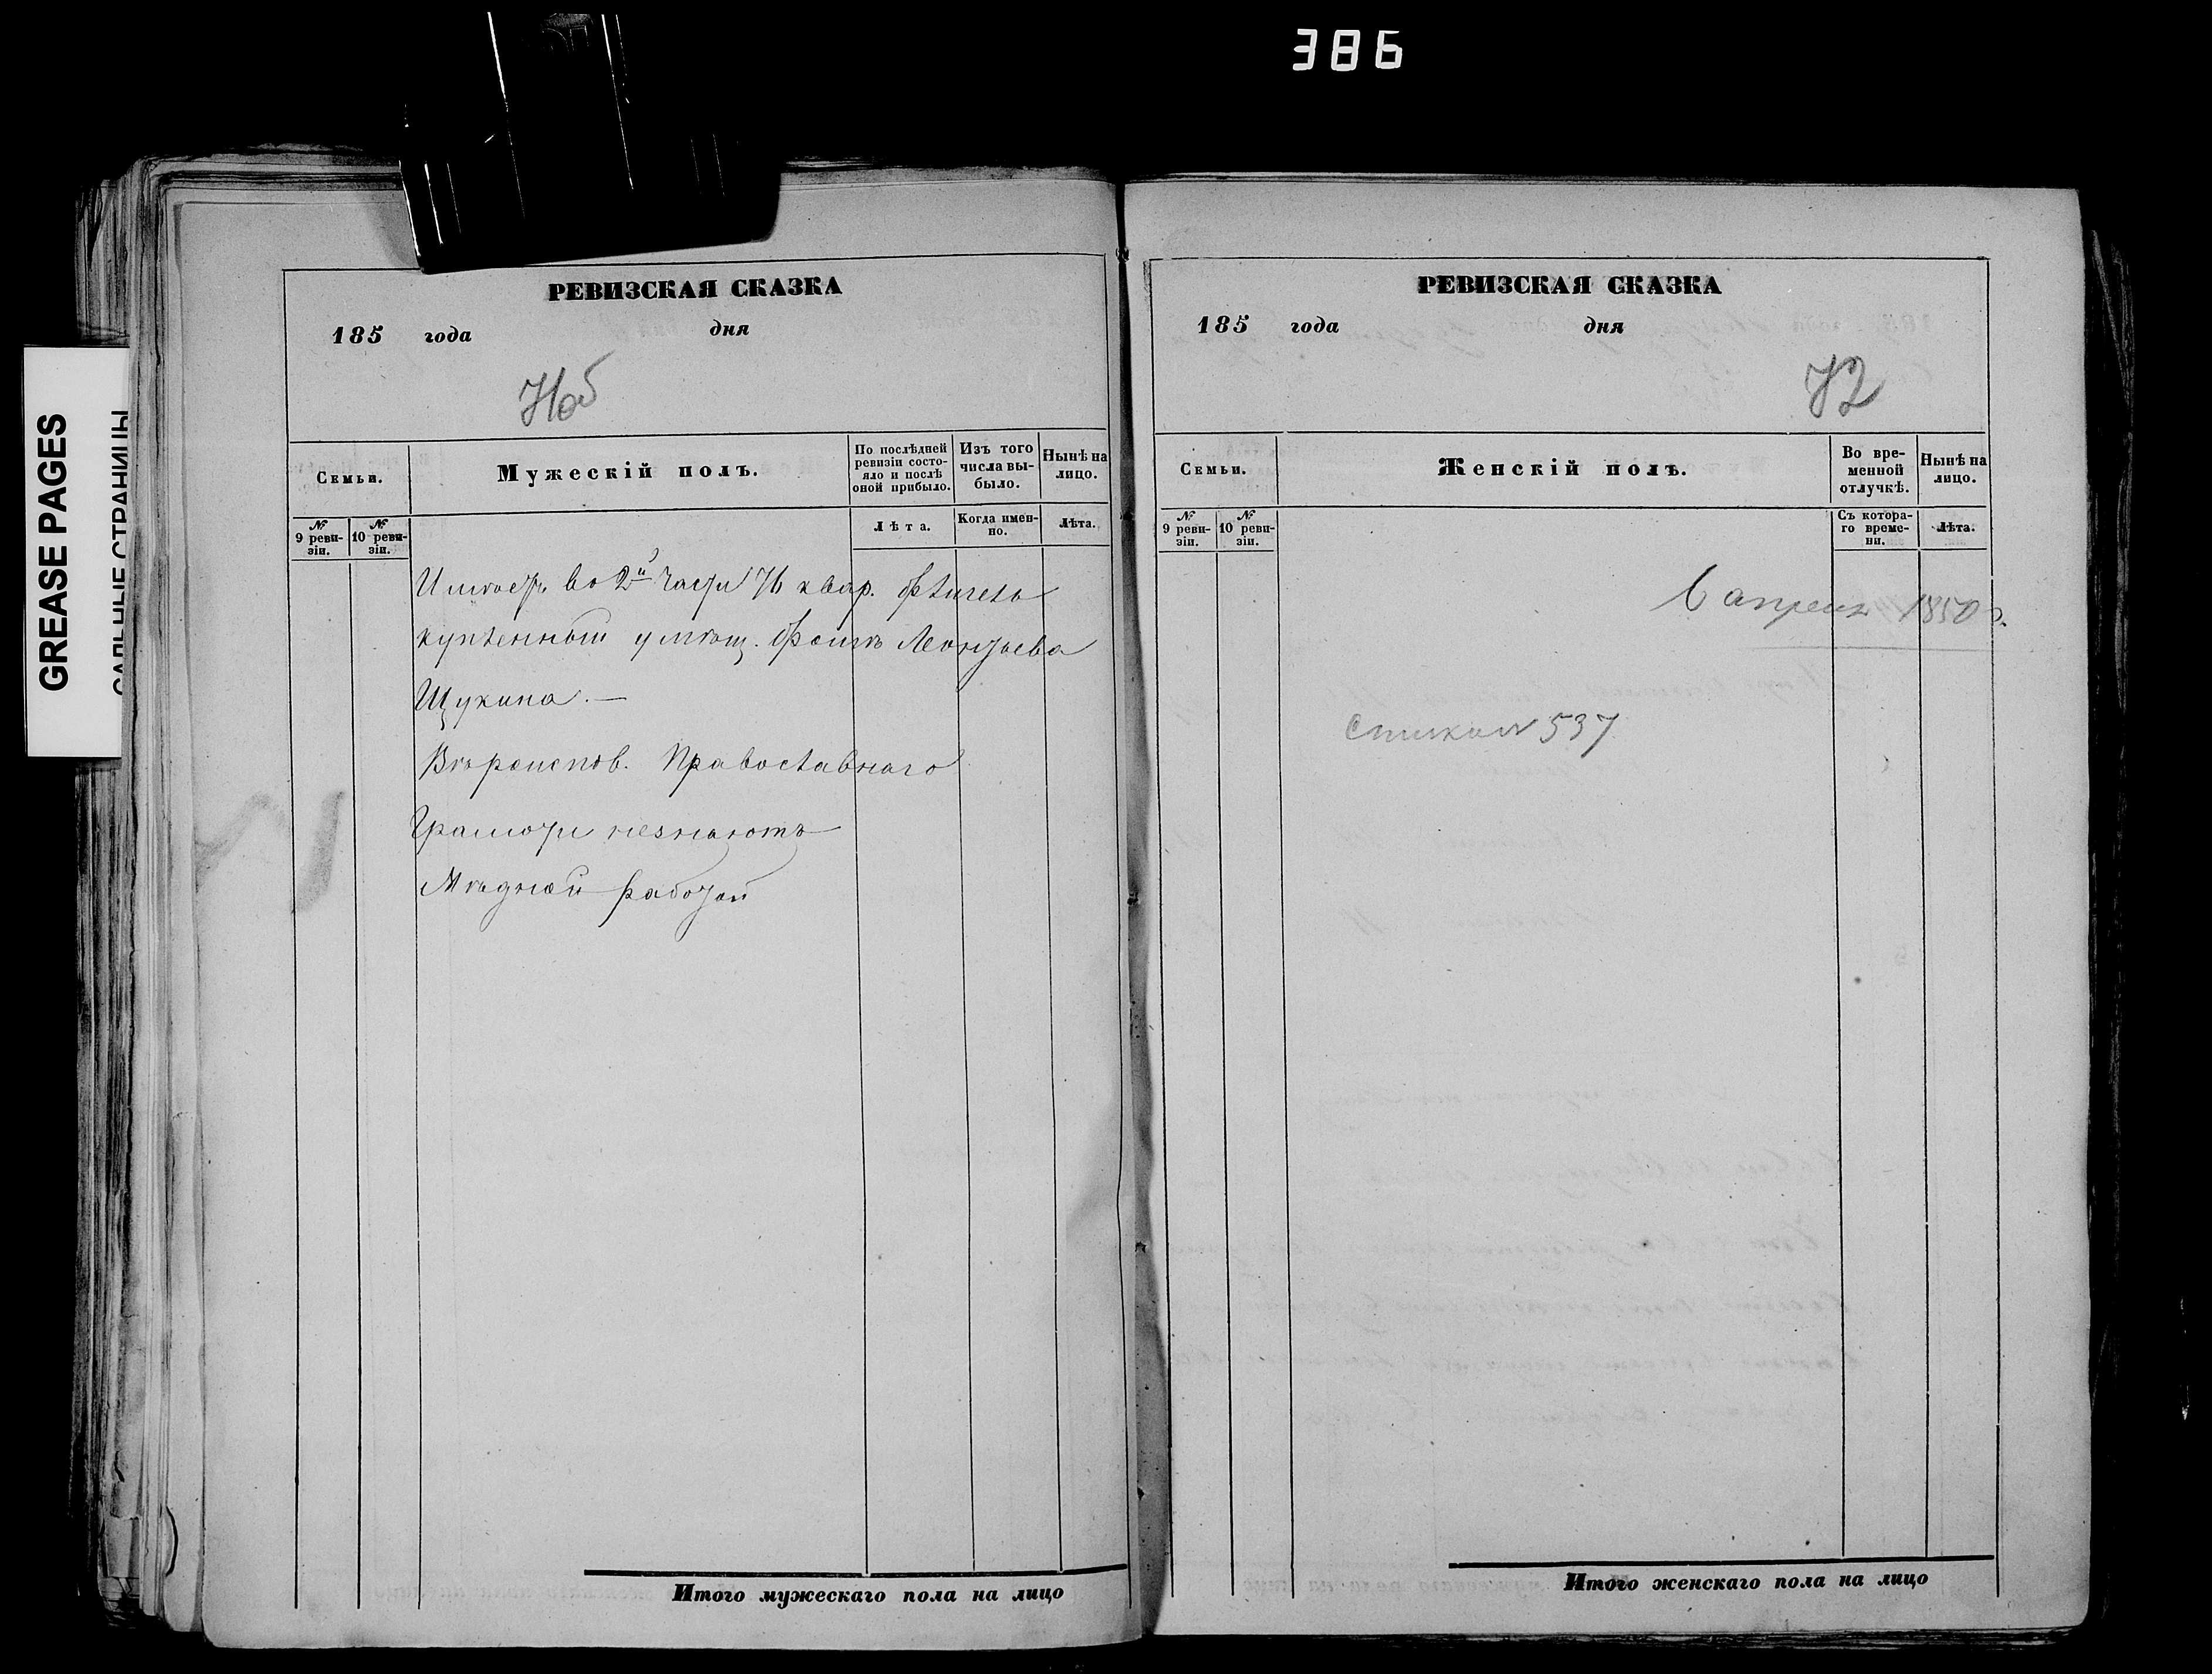 386
GREASE PAGES
САЛЬНЫЕ СТРАНИЦЫ
РЕВИЗСКАЯ СКАЗКА
185 года дня
71об
Семьи.
Мужескій полъ.
По послѣдней ревизіи состояло и послѣ оной прибыло.
Изъ того числа выбыло.
Нынѣ на лицо.
№ 9 ревизіи.
№ 10 ревизіи.
Лѣта.
Когда именно.
Лѣта.
Имѣетъ во 2й части 76 квар. флигель
купленный у мѣщ. Фомы Леонтьева
Щукина. —
Вѣроиспов. Православнаго
Грамоти незнаютъ
Мѣдной работой
Итого мужескаго пола на лицо
РЕВИЗСКАЯ СКАЗКА
185 года дня
72
Семьи.
Женскій полъ.
Во временной отлучкѣ.
Нынѣ на лицо.
№ 9 ревизіи.
№ 10 ревизіи.
Съ котораго времени.
Лѣта.
6 апреля 1850 г.
537
Итого женскаго пола на лицо